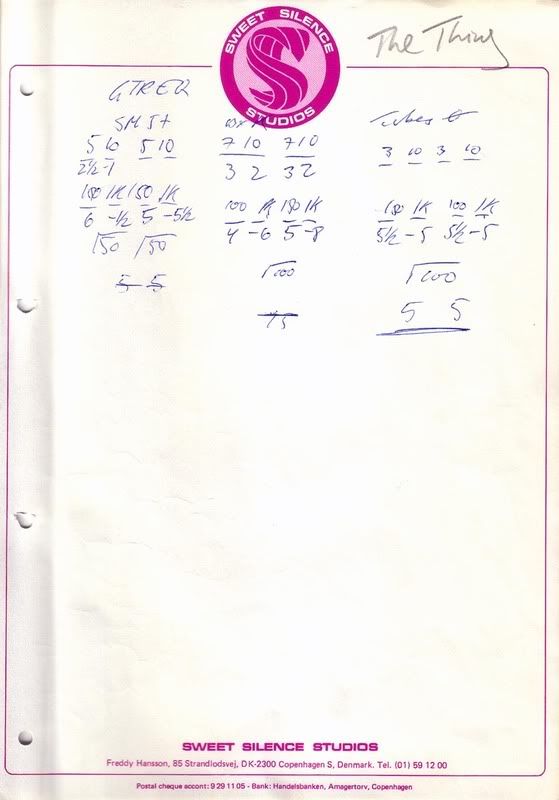 SWEET SILENCE
STUDIOS
The Thing
GTR EQ
5 10 5 10
7 10 7 10
3 10 3 10
2½ -1
3 2 3 2
150 1K 150 1K
6 -½ 5 -5½
100 1K 150 1K
4 -6 5 -8
150 1K 100 1K
5½ -5 5½ -5
√50 √50
√100
√100
5 5
5 5
SWEET SILENCE STUDIOS
Freddy Hansson, 85 Strandlodsvej, DK-2300 Copenhagen S, Denmark. Tel. (01) 59 12 00
Postal cheque accont: 9 29 11 05 - Bank: Handelsbanken, Amagertorv, Copenhagen